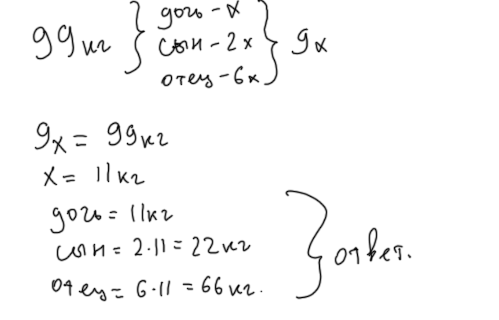 99кг } дочь - x } 9x
сын - 2x
отец - 6x
9x = 99кг
x = 11кг
дочь = 11кг
сын = 2·11 = 22кг } ответ.
отец = 6·11 = 66кг.